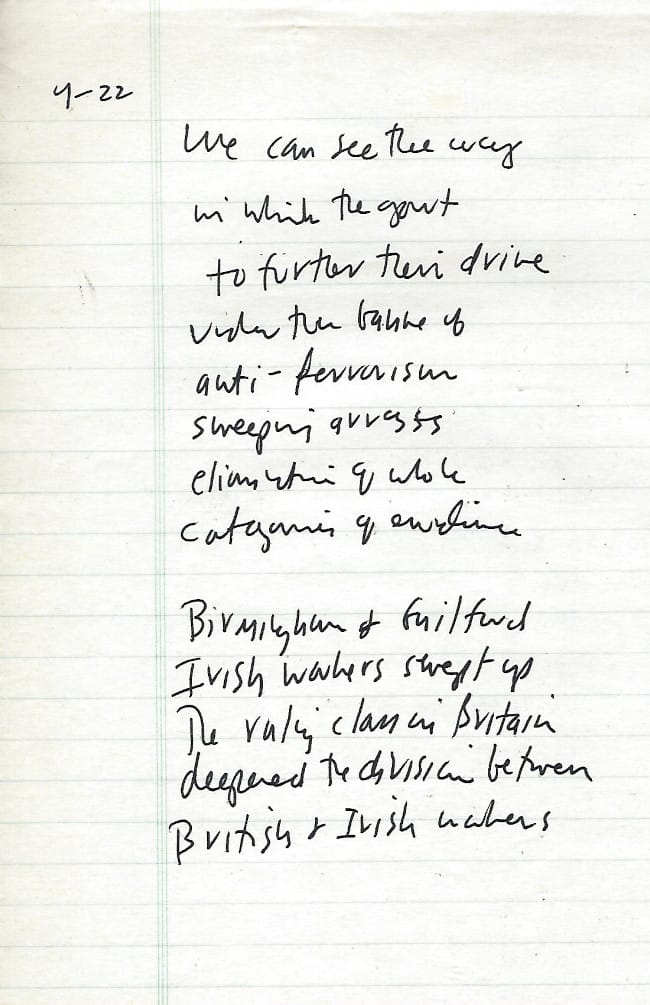 4-22
We can see the way
in which the govt
to further their drive
under the banne of
anti-terrorism
sweeping arrests
elimination of whole
categories of evidence
Birmingham & Guilford
Irish workers swept up
The ruling class in Britain
deepened the division between
British & Irish workers